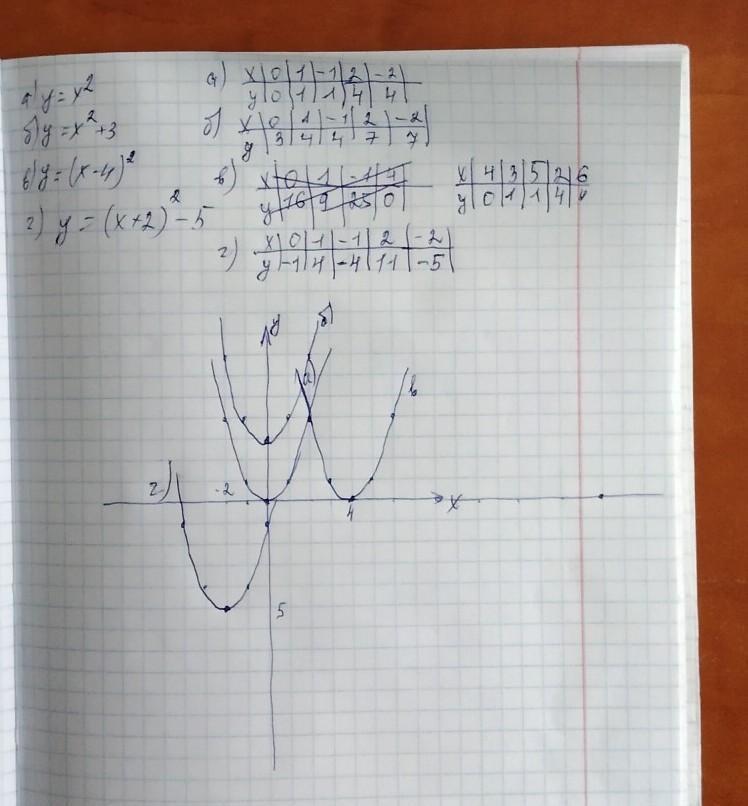 а) y = x²
б) y = x² + 3
в) y = (x-4)²
г) y = (x+2)² - 5
а) x | 0 | 1 | -1 | 2 | -2
y | 0 | 1 | 1 | 4 | 4
б) x | 0 | 1 | -1 | 2 | -2
y | 3 | 4 | 4 | 7 | 7
в) x | 0 | 1 | -1 | 4
y | 16 | 9 | 25 | 0
x | 4 | 3 | 5 | 2 | 6
y | 0 | 1 | 1 | 4 | 4
г) x | 0 | 1 | -1 | 2 | -2
y | -1 | 4 | -4 | 11 | -5
y
б)
а)
в
г)
-2
4
x
5